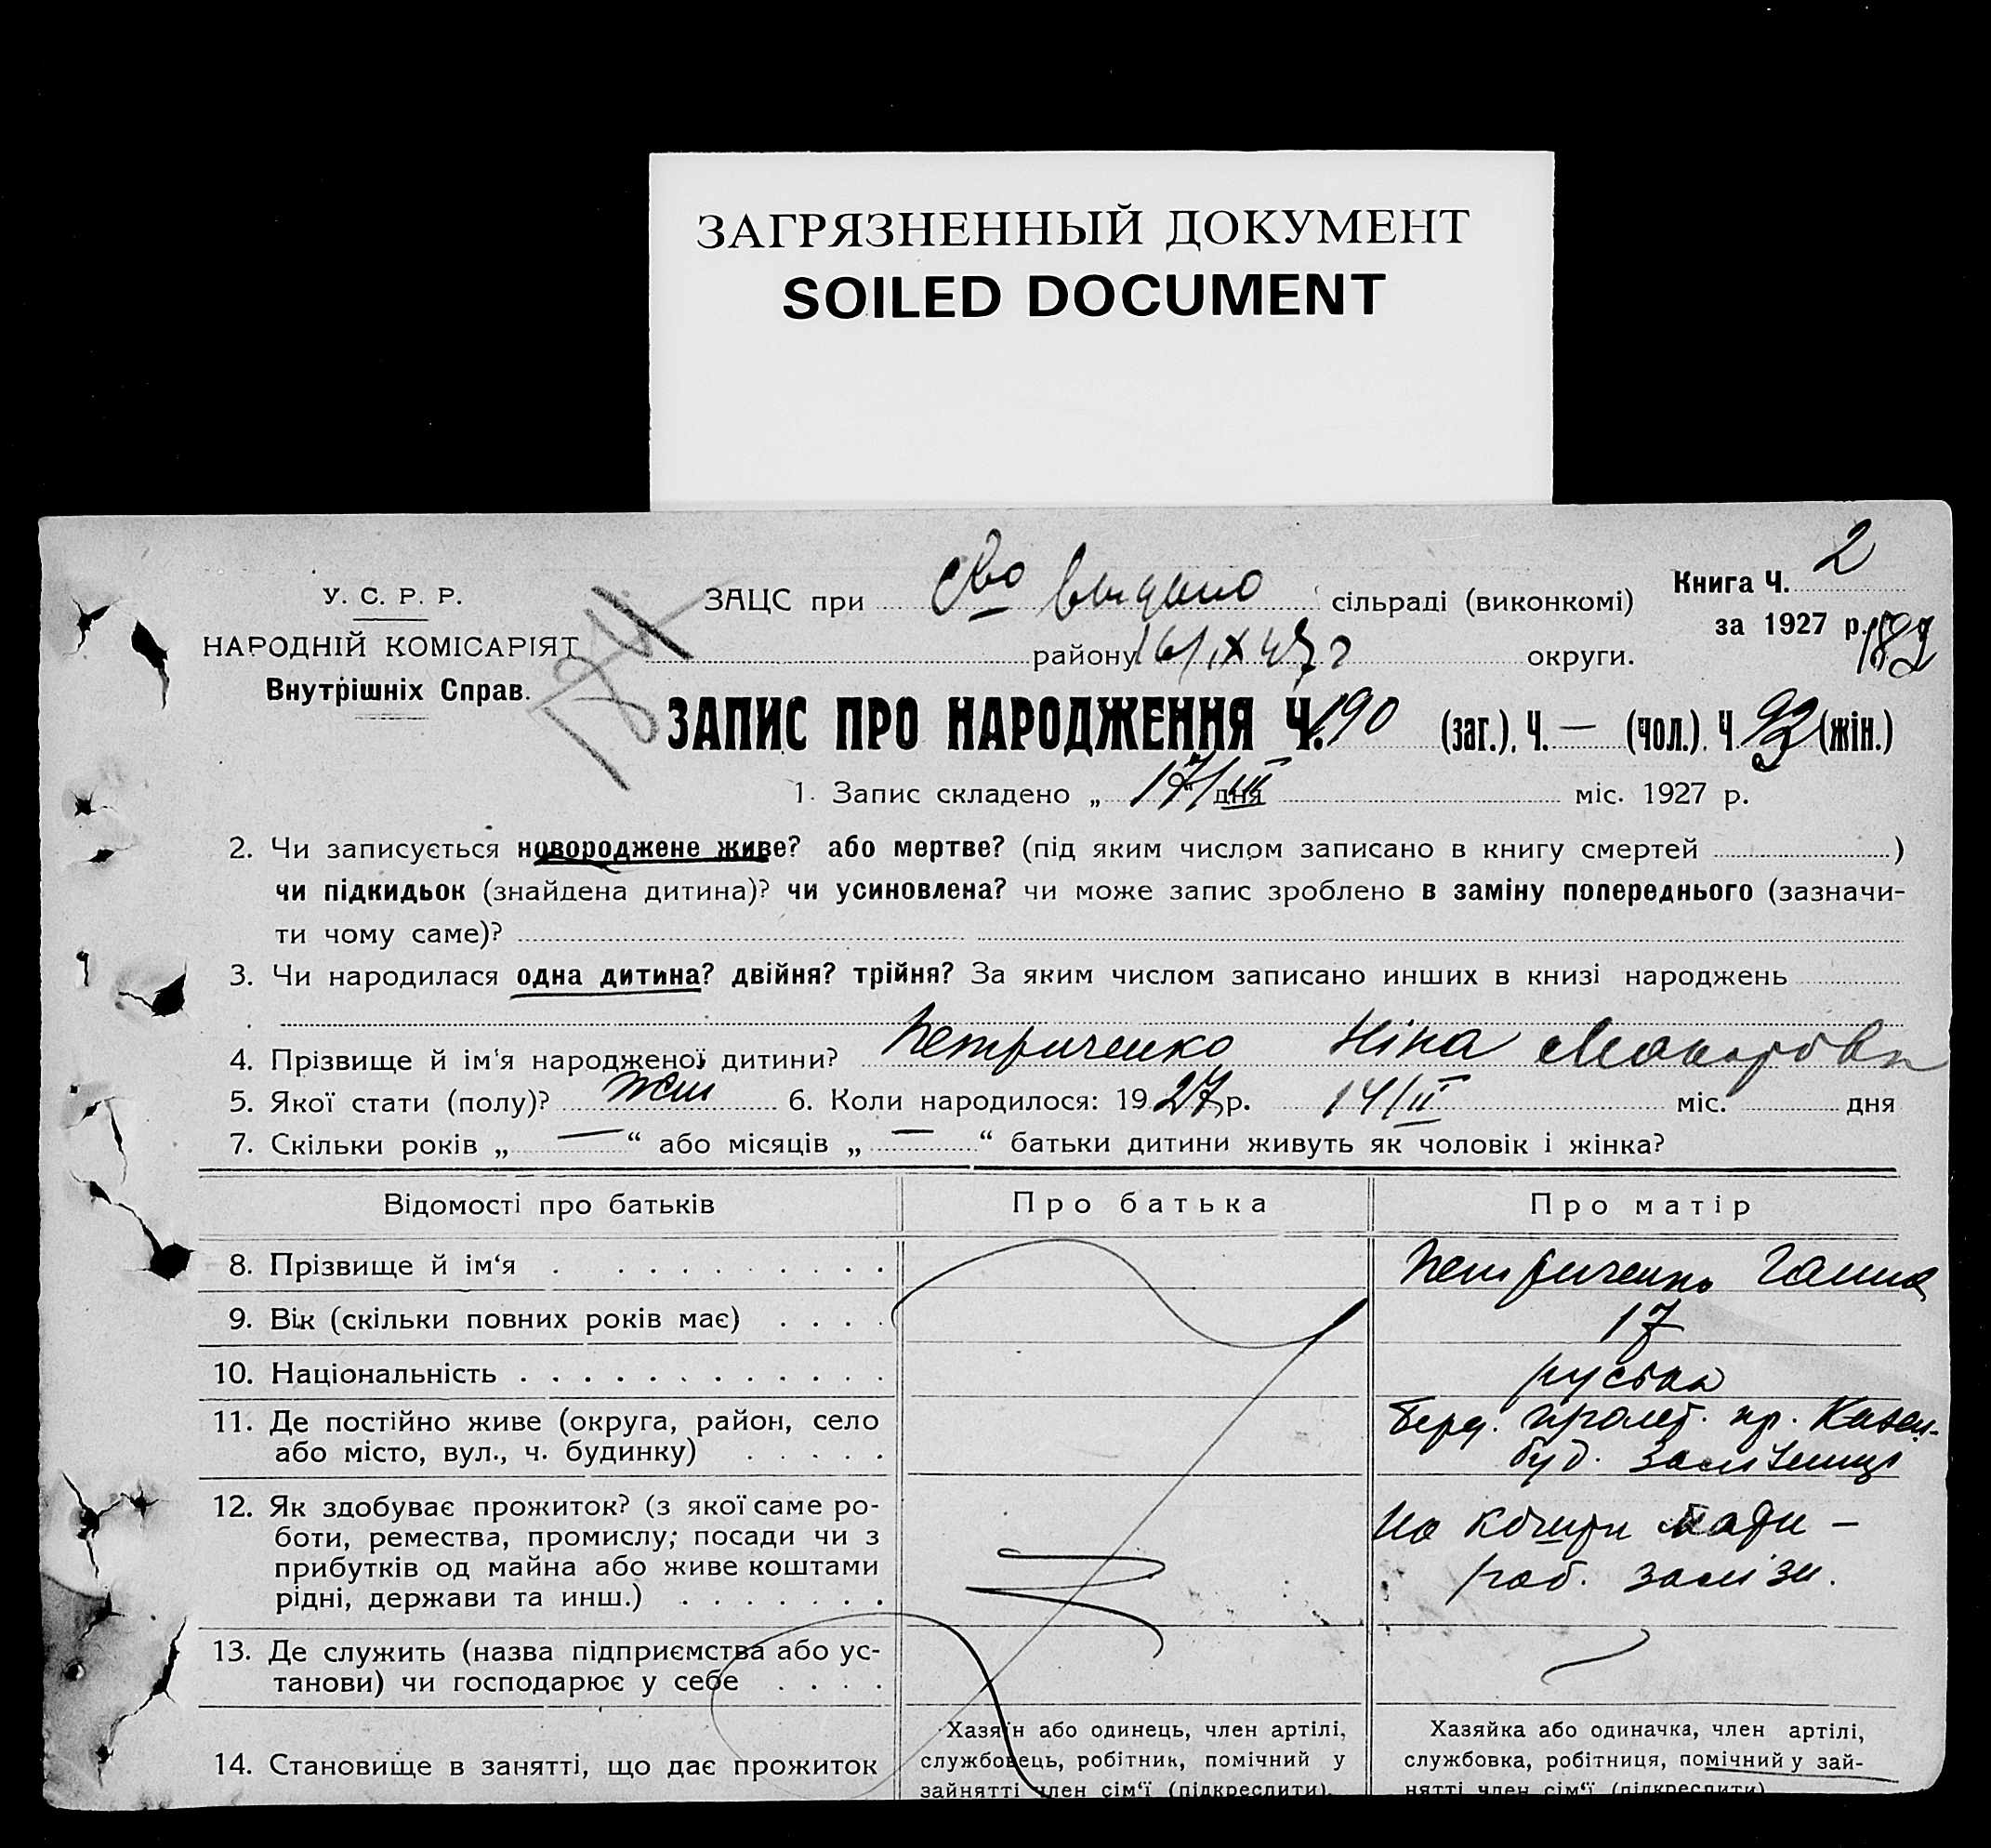 ЗАГРЯЗНЕННЫЙ ДОКУМЕНТ
SOILED DOCUMENT
У. С. Р. Р.
НАРОДНІЙ КОМІСАРІЯТ
Внутрішніх Справ.
184
ЗАЦС при Сво выдано сільраді (виконкомі)
району 16/IX 47 г округи.
Книга Ч. 2
за 1927 р. 182
ЗАПИС ПРО НАРОДЖЕННЯ Ч. 190 (заг.). Ч. — (чол.). Ч 92 (жін.)
1. Запис складено „ 17/III “ дня міс. 1927 р.
2. Чи записується новороджене живе? або мертве? (під яким числом записано в книгу смертей )
чи підкидьок (знайдена дитина)? чи усиновлена? чи може запис зроблено в заміну попереднього (зазначи-
ти чому саме)?
3. Чи народилася одна дитина? двійня? трійня? За яким числом записано инших в книзі народжень
4. Прізвище й ім'я народженої дитини? Петриченко Ніна Макаровн
5. Якої стати (полу)? жін 6. Коли народилося: 1927 р. 14/II міс. дня
7. Скільки років „ — “ або місяців „ — “ батьки дитини живуть як чоловік і жінка?
Відомості про батьків Про батька Про матір
8. Прізвище й ім‘я . . . . . . . . . . Петриченко Ганна
9. Вік (скільки повних років має) . . . . 17
10. Національність . . . . . . . . . . . . . руська
11. Де постійно живе (округа, район, село
або місто, вул., ч. будинку) . . . . .
буд. залізниці
12. Як здобуває прожиток? (з якої саме ро-
боти, ремества, промислу; посади чи з
прибутків од майна або живе коштами
рідні, держави та инш.) . . . . . . .
На кошти
роб. залізн.
13. Де служить (назва підприємства або ус-
танови) чи господарює у себе . . . .
14. Становище в занятті, що дає прожиток
Хазяїн або одинець, член артілі,
службовець, робітник, помічний у
зайнятті член сім‘ї (підкреслити).
Хазяйка або одиначка, член артілі,
службовка, робітниця, помічний у зай-
нятті член сім‘ї (підкреслити)